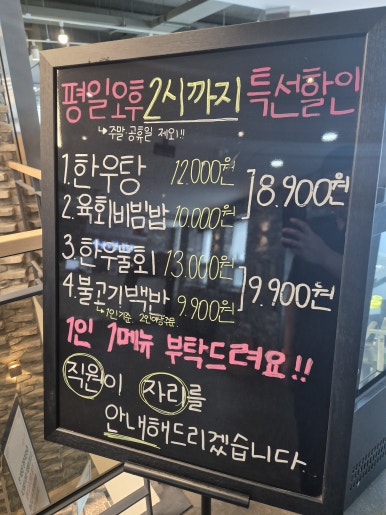 평일오후 2시까지 특선할인
↳주말·공휴일 제외!!
1.한우탕 12.000원
2.육회비빔밥 10.000원
]8.900원
3.한우물회 13.000원
4.불고기백반 9.900원
]9.900원
↳1인기준. 2인이상주문.
1인 1메뉴 부탁드려요!!
직원이 자리를
안내해드리겠습니다.